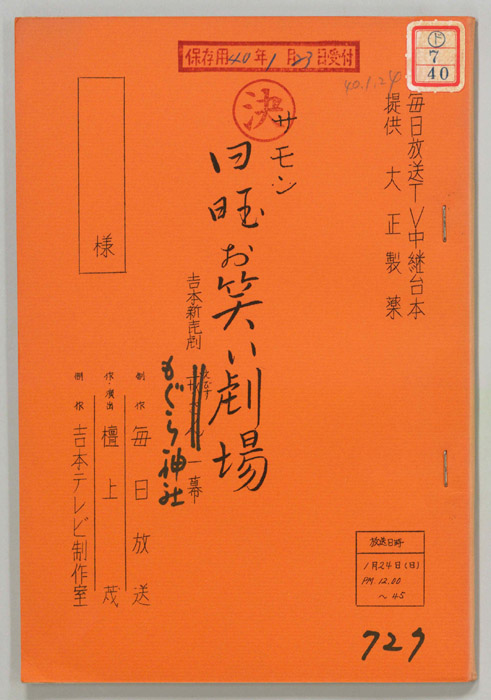 保存用40年1月23日受付
ド
7
40
40.1.24
毎日放送TV中継台本
提供 大正製薬
決
サモン
日曜お笑い劇場
吉本新喜劇
改題
もぐら神社
一幕
様
制作 毎日放送
作・演出 檀上茂
制作 吉本テレビ制作室
放送日時
1月24日(日)
PM.12.00
~45
729